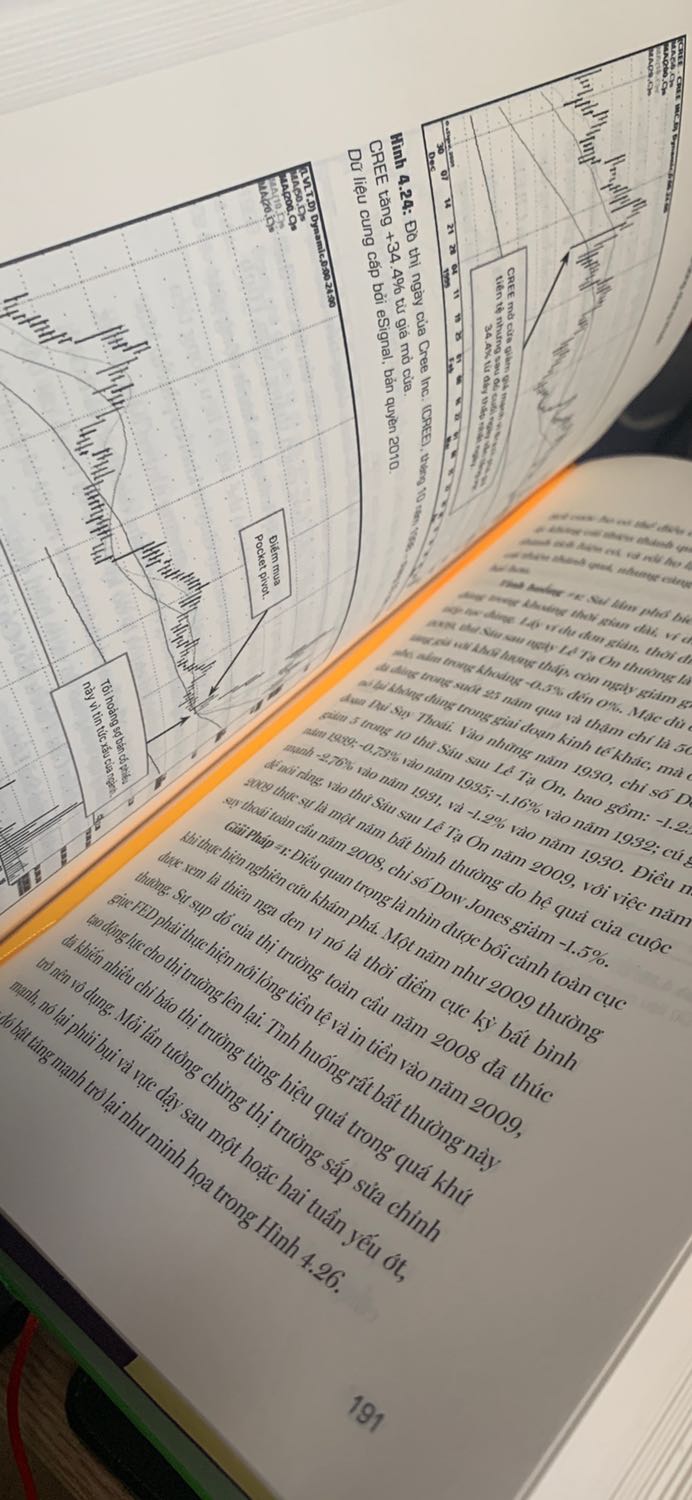 (CREE - CREE INC,D) Dynamic,0:00-24:00
MA(50,C)n
MA(200,C)n
MA(10,C)n
MA(20,C)n
CREE mở cửa giảm giá mạnh
tiền tệ nhưng sau đó cuối ngày
34.4% từ đáy thấp nhất
30 07 14 21 28 04 11 19 25 01 08
Dec 1999 Feb
Hình 4.24: Đồ thị ngày của Cree Inc. (CREE), tháng 10 năm 1998
CREE tăng +34.4% từ giá mở cửa.
Dữ liệu cung cấp bởi eSignal, bản quyền 2010.
(LVLT,D) Dynamic,0:00-24:00
MA(50,C)n
MA(200,C)n
MA(10,C)n
MA(20,C)n
Điểm mua
Pocket pivot
Tôi hoảng sợ bán cổ phiếu
này vì tin tức xấu của ngành
một cuộc họ có thể điều
không cải thiện thành quả
thành tích hiện có, và rồi họ
cải thiện thành quả, nhưng cũng
hại hơn.
Tình huống #1: Sai lầm phổ biến
đúng trong khoảng thời gian dài, ví dụ
tiếp tục đúng. Lấy ví dụ đơn giản, thời
2009, thứ Sáu sau ngày Lễ Tạ Ơn thường là
tăng giá với khối lượng thấp, còn ngày giảm
nhẹ, nằm trong khoảng -0.5% đến 0%. Mặc dù
đã đúng trong suốt 25 năm qua và thậm chí là 50
nó lại không đúng trong giai đoạn kinh tế khác, mà
đoạn Đại Suy Thoái. Vào những năm 1930, chỉ số
giảm 5 trong 10 thứ Sáu sau Lễ Tạ Ơn, bao gồm:
năm 1939; -0.73% vào năm 1935; -1.16% vào năm 1932; cú
mạnh -2.76% vào năm 1931, và -1.2% vào năm 1930. Điều
để nói rằng, vào thứ Sáu sau Lễ Tạ Ơn năm 2009, với việc năm
2009 thực sự là một năm bất bình thường do hệ quả của cuộc
suy thoái toàn cầu năm 2008, chỉ số Dow Jones giảm -1.5%.
Giải Pháp #1: Điều quan trọng là nhìn được bối cảnh toàn cục
khi thực hiện nghiên cứu khám phá. Một năm như 2009 thường
được xem là thiên nga đen vì nó là thời điểm cực kỳ bất bình
thường. Sự sụp đổ của thị trường toàn cầu năm 2008 đã thúc
giục FED phải thực hiện nới lỏng tiền tệ và in tiền vào năm 2009,
tạo động lực cho thị trường lên lại. Tình huống rất bất thường này
đã khiến nhiều chỉ báo thị trường từng hiệu quả trong quá khứ
trở nên vô dụng. Mỗi lần tưởng chừng thị trường sắp sửa chỉnh
mạnh, nó lại phủi bụi và vực dậy sau một hoặc hai tuần yếu ớt,
đó bật tăng mạnh trở lại như minh họa trong Hình 4.26.
191